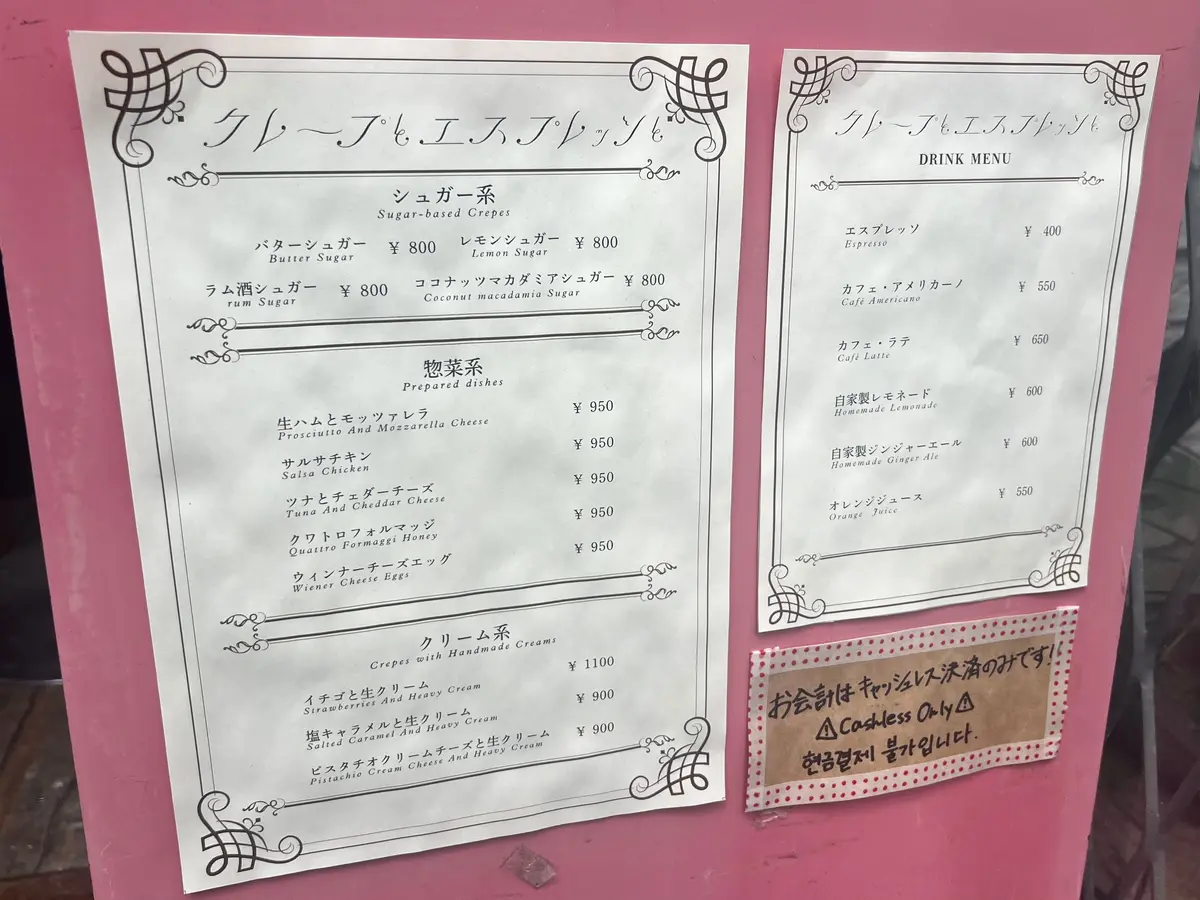 クレープとエスプレッソと
シュガー系
Sugar-based Crepes
バターシュガー ¥ 800 レモンシュガー ¥ 800
Butter Sugar Lemon Sugar
ラム酒シュガー ¥ 800 ココナッツマカダミアシュガー ¥ 800
rum Sugar Coconut macadamia Sugar
惣菜系
Prepared dishes
生ハムとモッツァレラ ¥ 950
Prosciutto And Mozzarella Cheese
サルサチキン ¥ 950
Salsa Chicken
ツナとチェダーチーズ ¥ 950
Tuna And Cheddar Cheese
クワトロフォルマッジ ¥ 950
Quattro Formaggi Honey
ウィンナーチーズエッグ ¥ 950
Wiener Cheese Eggs
クリーム系
Crepes with Handmade Creams
イチゴと生クリーム ¥ 1100
Strawberries And Heavy Cream
塩キャラメルと生クリーム ¥ 900
Salted Caramel And Heavy Cream
ピスタチオクリームチーズと生クリーム ¥ 900
Pistachio Cream Cheese And Heavy Cream
クレープとエスプレッソと
DRINK MENU
エスプレッソ ¥ 400
Espresso
カフェ・アメリカーノ ¥ 550
Café Americano
カフェ・ラテ ¥ 650
Café Latte
自家製レモネード ¥ 600
Homemade Lemonade
自家製ジンジャーエール ¥ 600
Homemade Ginger Ale
オレンジジュース ¥ 550
Orange Juice
お会計はキャッシュレス決済のみです!!
⚠Cashless Only⚠
현금결제 불가입니다.